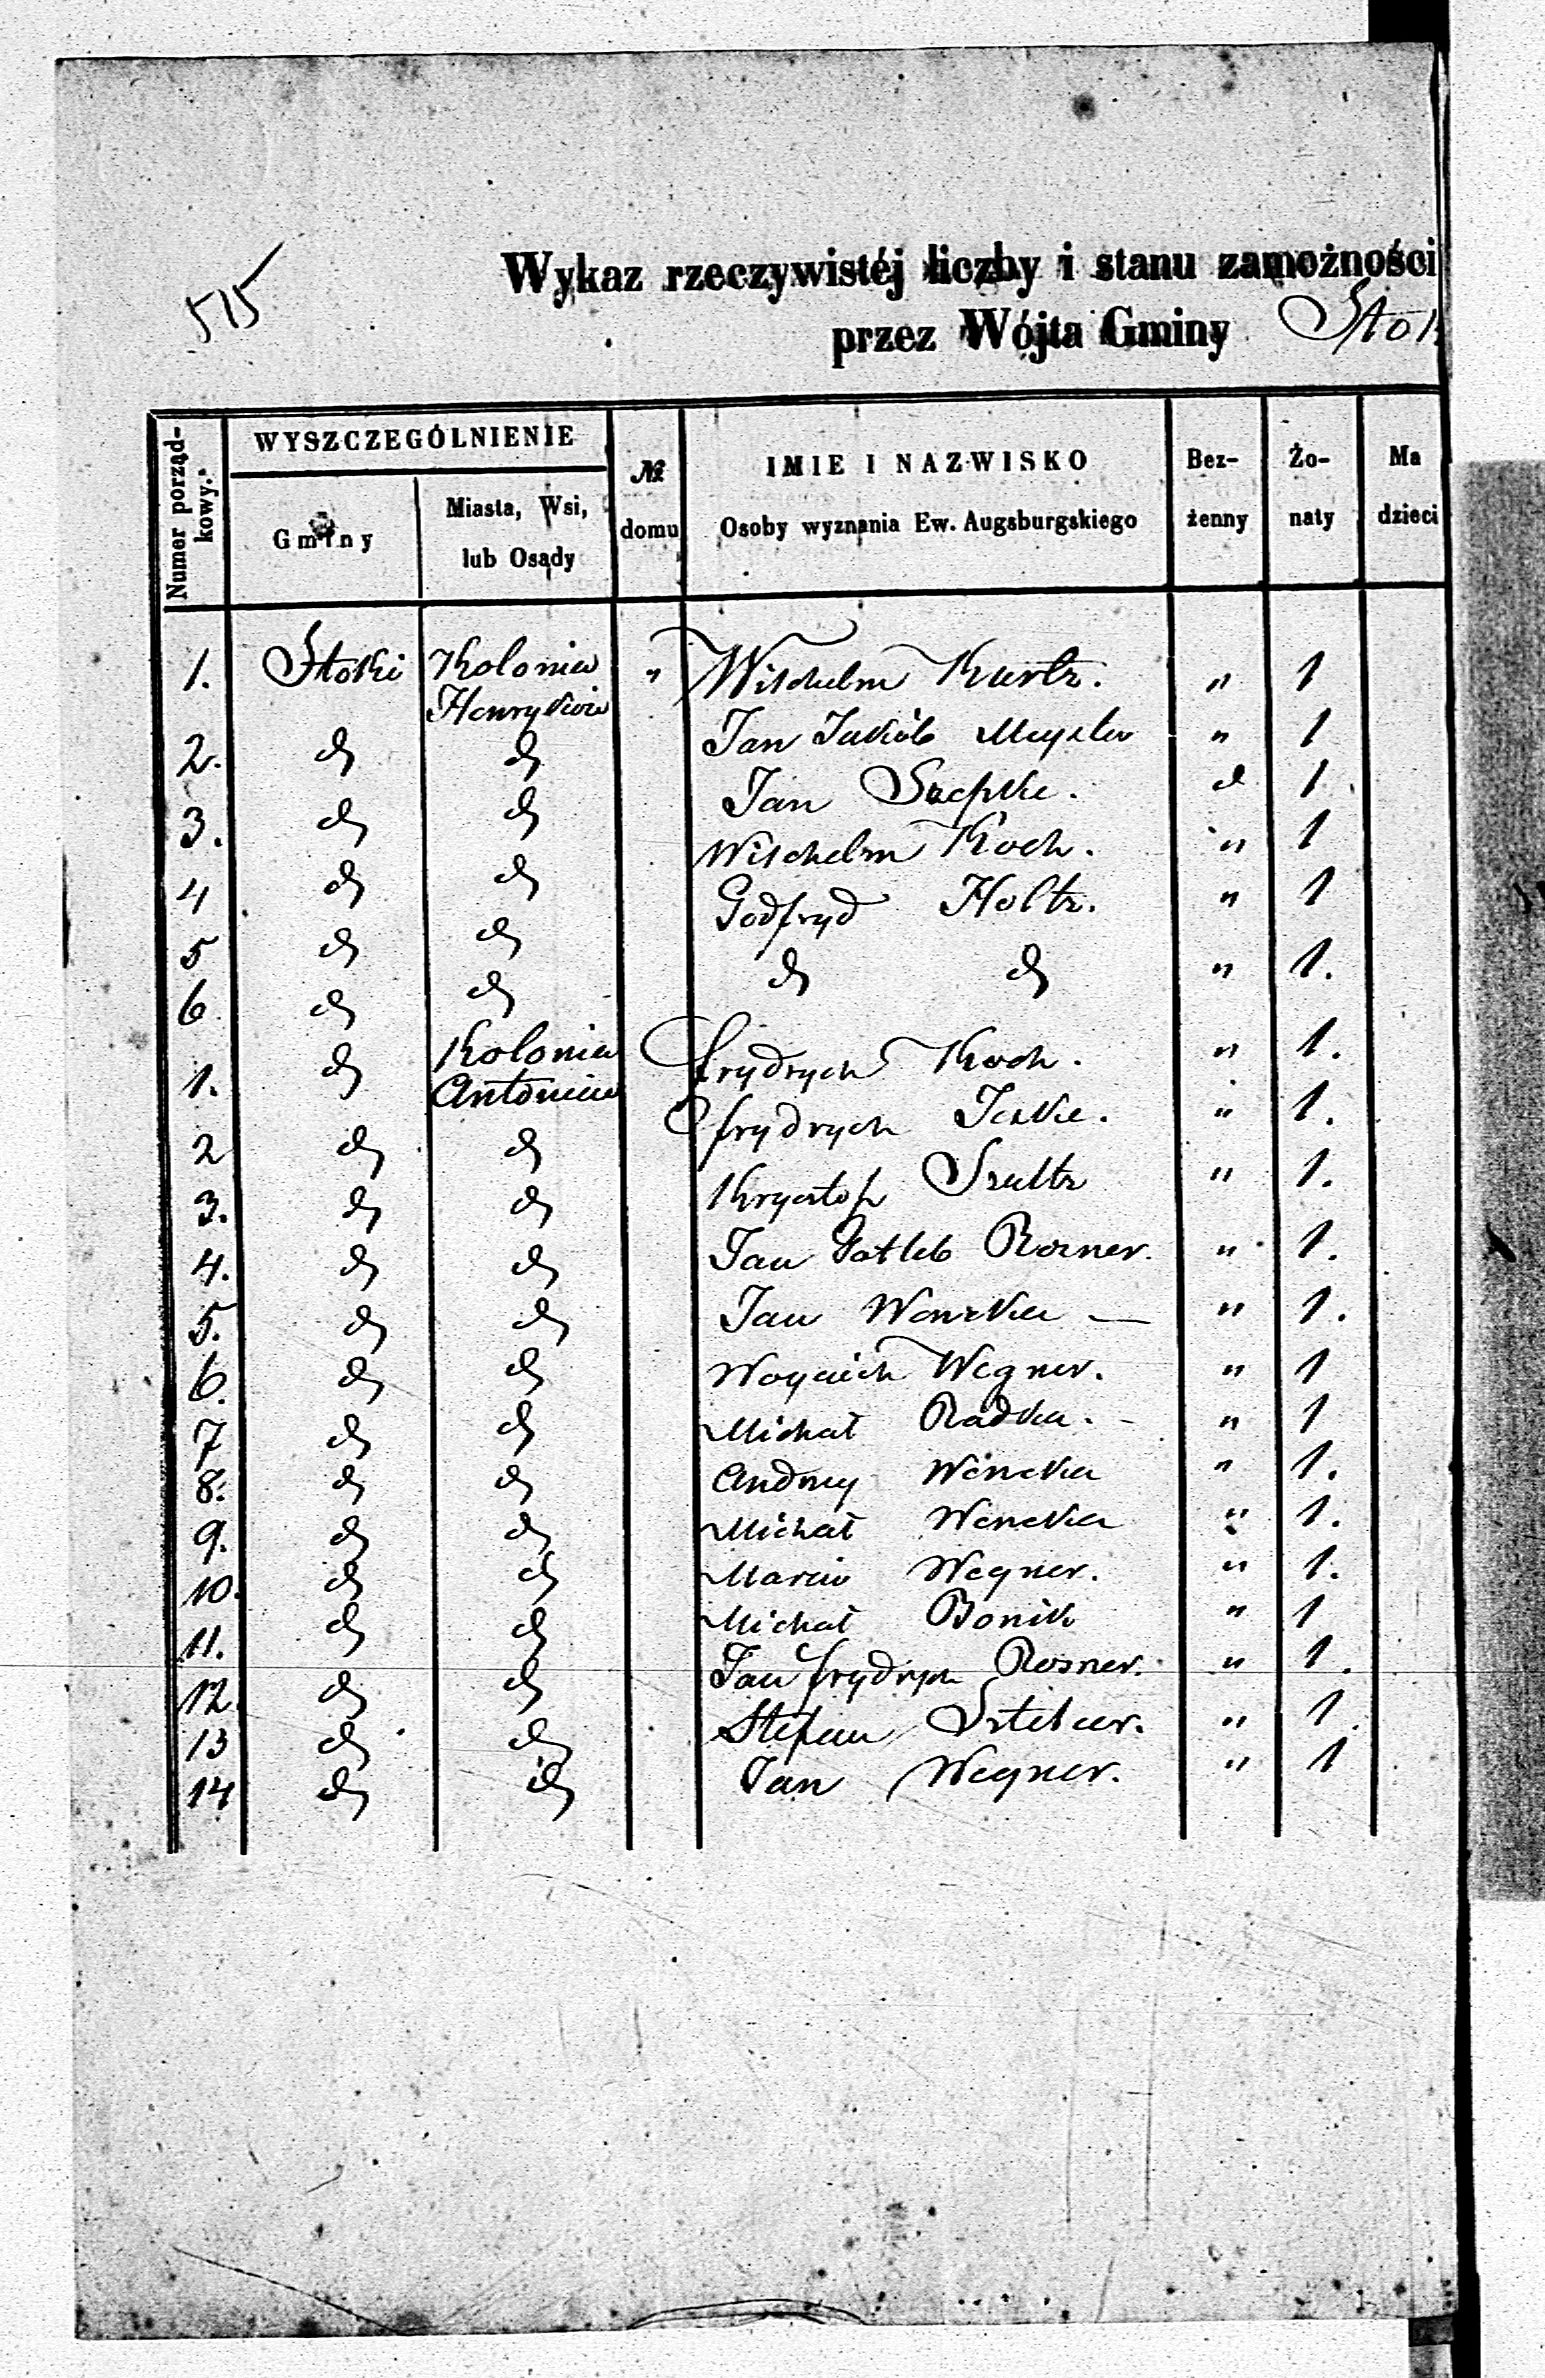 515
Wykaz rzeczywistéj liczby i stanu zamożności
przez Wójta Gminy Stok
Numer porządkowy.
WYSZCZEGÓLNIENIE
Gminy
Miasta, Wsi,
lub Osady
№
domu
IMIE I NAZWISKO
Osoby wyznania Ew. Augsburgskiego
Bez-
żenny
Żo-
naty
Ma
dzieci
1. Stoki Kolonia Henrykow " Wilchelm Kurtz. " 1
2. d d Jan Jakób " 1
3. d d Jan d 1
4 d d Wilchelm Koch. " 1
5 d d Godfryd Holtz. " 1
6 d d d d " 1.
1. d Kolonia Antoniew Frydrych Koch. " 1.
2 d d Frydrych Jeske. " 1.
3. d d Krysztof Szultz " 1.
4. d d Jan Gotleb Rosner. " 1.
5. d d Jan Wenzka — " 1.
6. d d Woyciech Wegner. " 1
7 d d Michał Radka. " 1
8. d d Andrzy Wenzka " 1.
9. d d Michał Wenzka " 1.
10. d d Marcin Wegner. " 1.
11. d d Michał Bonik " 1
12 d d Jan Frydrych Rosner. " 1.
13 d d Stefan " 1.
14 d d Jan Wegner. " 1